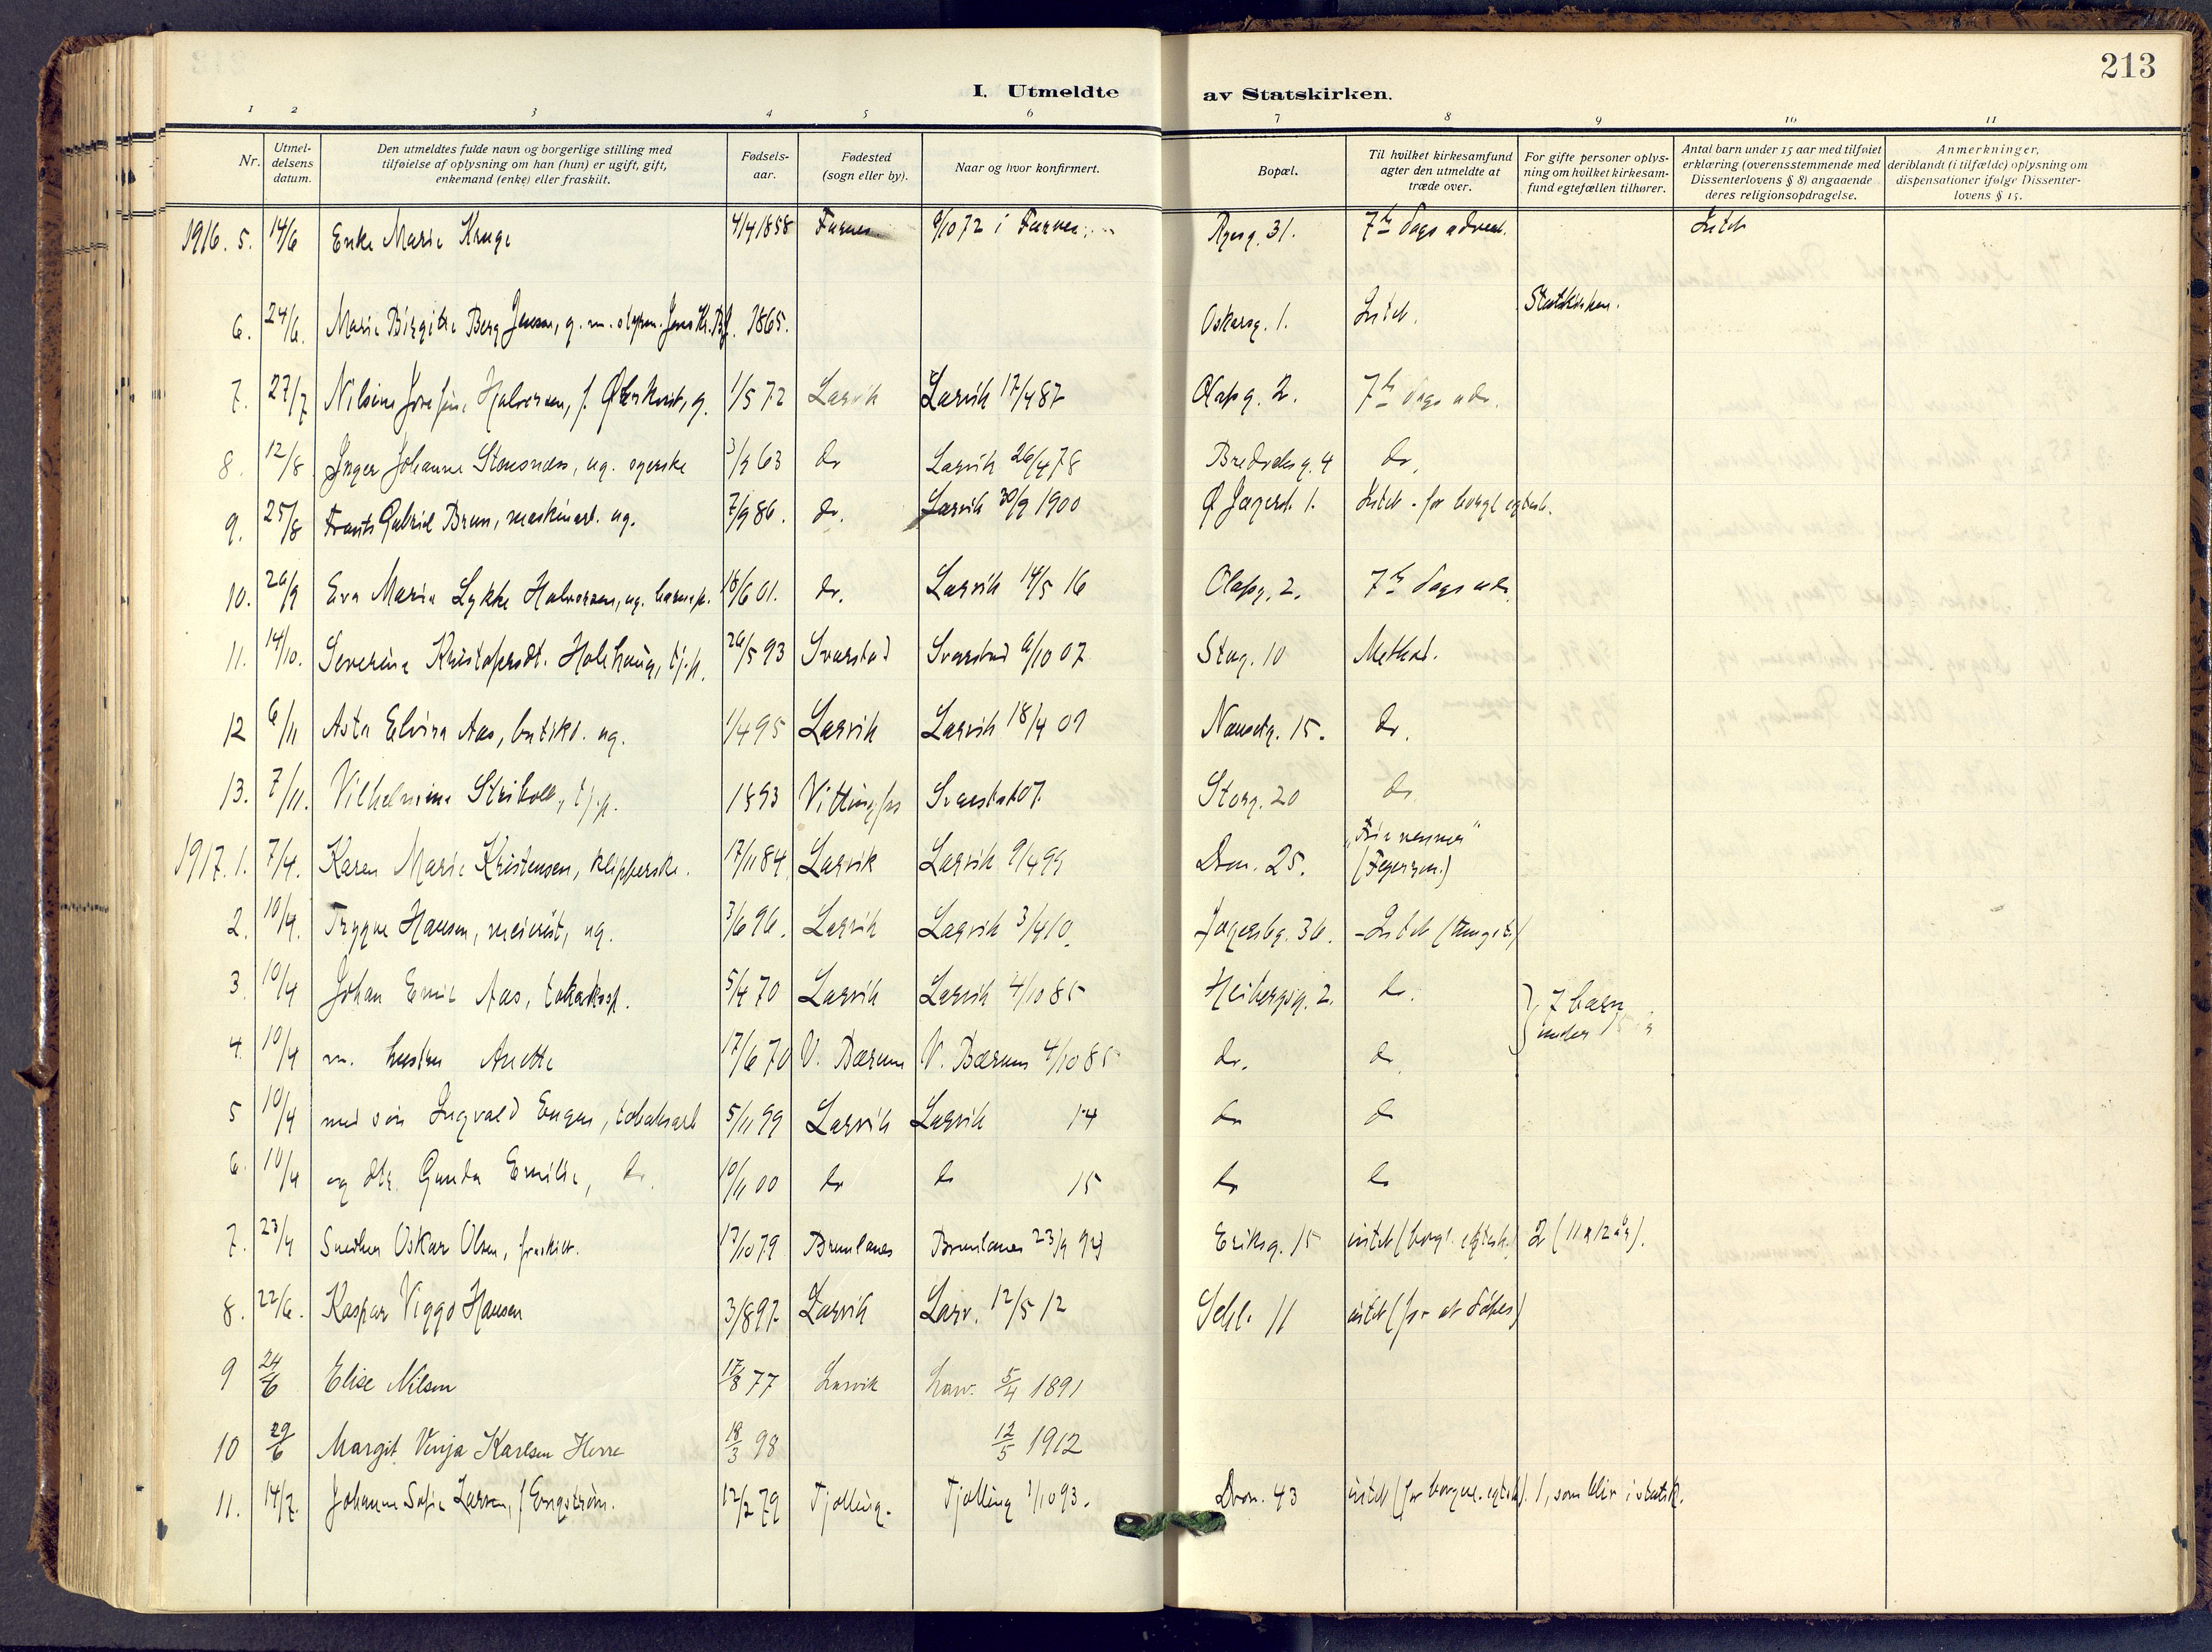 213
I. Utmeldte av Statskirken.
1 2 3 4 5 6 7 8 9 10 11
Nr. Utmel- Den utmeldtes fulde navn og borgerlige stilling med Fødsels- Fødested Naar og hvor konfirmert. Bopæl. Til hvilket kirkesamfund For gifte personer oplys- Antal barn under 15 aar med tilføiet Anmerkninger,
delsens tilføielse af oplysning om han (hun) er ugift, gift, aar. (sogn eller by). agter den utmeldte at ning om hvilket kirkesam- erklæring (overensstemmende med deriblandt (i tilfælde) oplysning om
datum. enkemand (enke) eller fraskilt. træde over. fund egtefællen tilhører. Dissenterlovens § 8) angaaende dispensationer ifølge Dissenter-
deres religionsopdragelse. lovens § 15.
1916. 5. 14/6 Enke Marie Kruge 4/4 1858 Furnes 6/10 72 i Furnes 31. 7de dags advent. Intet
6. 24/6. Marie Birgitte Berg Jensen, g. m. 1865. Oskarsg. 1. Intet. Statskirken.
7. 27/7 Nilsine Josefine Halvorsen, f. g. 1/5 72 Larvik Larvik 17/4 87 Olafsg. 2. 7de dags adv.
8. 12/8 Inger Johanne Stensnæs, ug. syerske 3/9 63 do Larvik 26/4 78 4 do.
9. 25/8 Frants Gabriel Brun, maskinarb. ug. 7/9 86. do. Larvik 30/9 1900 1. Intet - for borgl egtesk.
10. 20/9 Eva Marie Lykke Halvorsen, ug. 18/6 01. do. Larvik 14/5 16 Olafsg. 2. 7de dags adv.
11. 14/10. Severine Kristofersdt. Holehaug, tj.p. 26/5 93 Svarstad Svarstad 6/10 07 Stag. 10 Method.
12 6/11 Asta Elvira Aas, butikd. ug. 1/4 95 Larvik Larvik 18/4 09 Nansetg. 15. do.
13. 7/11. Vilhelmine Stribolt, tj.p. 1893 Vittingfos Svarstad 07. Storg. 20 do
1917. 1. 7/4. Karen Marie Kristensen, klipperske. 17/11 84 Larvik Larvik 9/4 99 Dron. 25. "Frie venner" (Fegersen.)
2. 10/4. Trygve Hansen, meierist, ug. 3/6 96. Larvik Larvik 3/4 10. Jegersbg. 36. - Intet
3. 10/4 Johan Emil Aas, 5/4 70 Larvik Larvik 4/10 85 Heibergsg. 2. do. } 7 barn
4. 10/4 m. hustru Anette 17/6 70 V. Bærum V. Bærum 4/10 85 do. do. under 15
5 10/4 med søn Ingvald Eugen, tobaksarb 5/11 99 Larvik Larvik 14 do do
6. 10/4 og dtr. Gunda Emilie, do. 10/11 00 do do 15 do do
7. 23/4 Oskar Olsen, fraskilt. 17/10 79 Brunlanes Brunlanes 23/9 94 Eriksg. 15 intet (borgl. egtesk.) 2 (11 & 12 år).
8. 22/6. Kaspar Viggo Hansen 3/8 97. Larvik Larv. 12/5 12 11 intet (for at døpes)
9 24/6 Elise Nilsen 17/8 77 Larvik Larv. 5/4 1891
10 29/6 Margit Venja Karlsen Herre 18/3 98 12/5 1912
11. 14/7. Johanne Sofie Larsen, f Engström. 12/2 79 Tjølling. Tjølling 1/10 93. Dron. 43 intet (for borgerl. egtesk). 1, som blir i statsk.